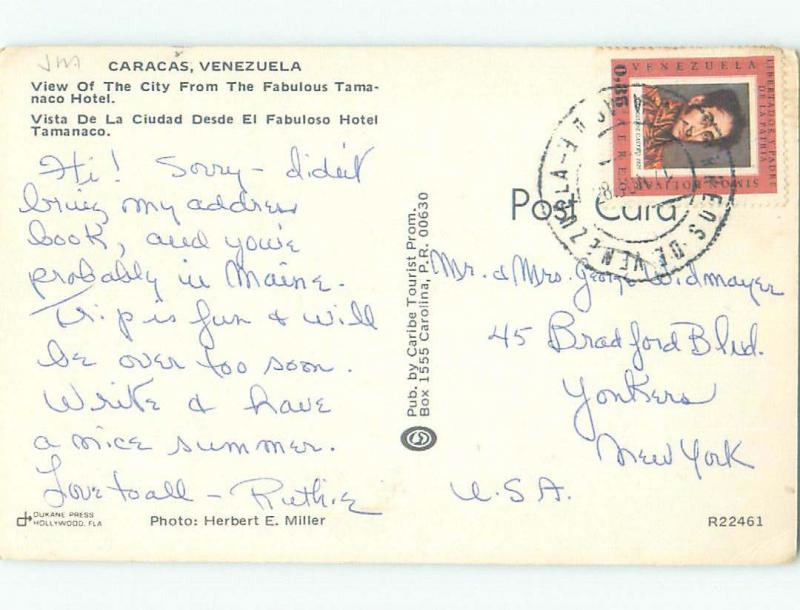 JM
CARACAS, VENEZUELA
View Of The City From The Fabulous Tama-
naco Hotel.
Vista De La Ciudad Desde El Fabuloso Hotel
Tamanaco.
Hi! Sorry - didn't
bring my address
book, and you're
probably in Maine.
Trip is fun & will
be over too soon.
Write & have
a nice summer.
Love to all - Ruthie
DUKANE PRESS
HOLLYWOOD, FLA
Photo: Herbert E. Miller
Pub. by Caribe Tourist Prom.
Box 1555 Carolina, P.R. 00630
VENEZUELA
0,85
AEREO
LIBERTADOR Y PADRE
DE LA PATRIA
SIMON BOLIVAR
CORREOS DE VENEZUELA
Post Card
Mr. & Mrs. George Widmayer
45 Bradford Blvd.
Yonkers
New York
U.S.A.
R22461